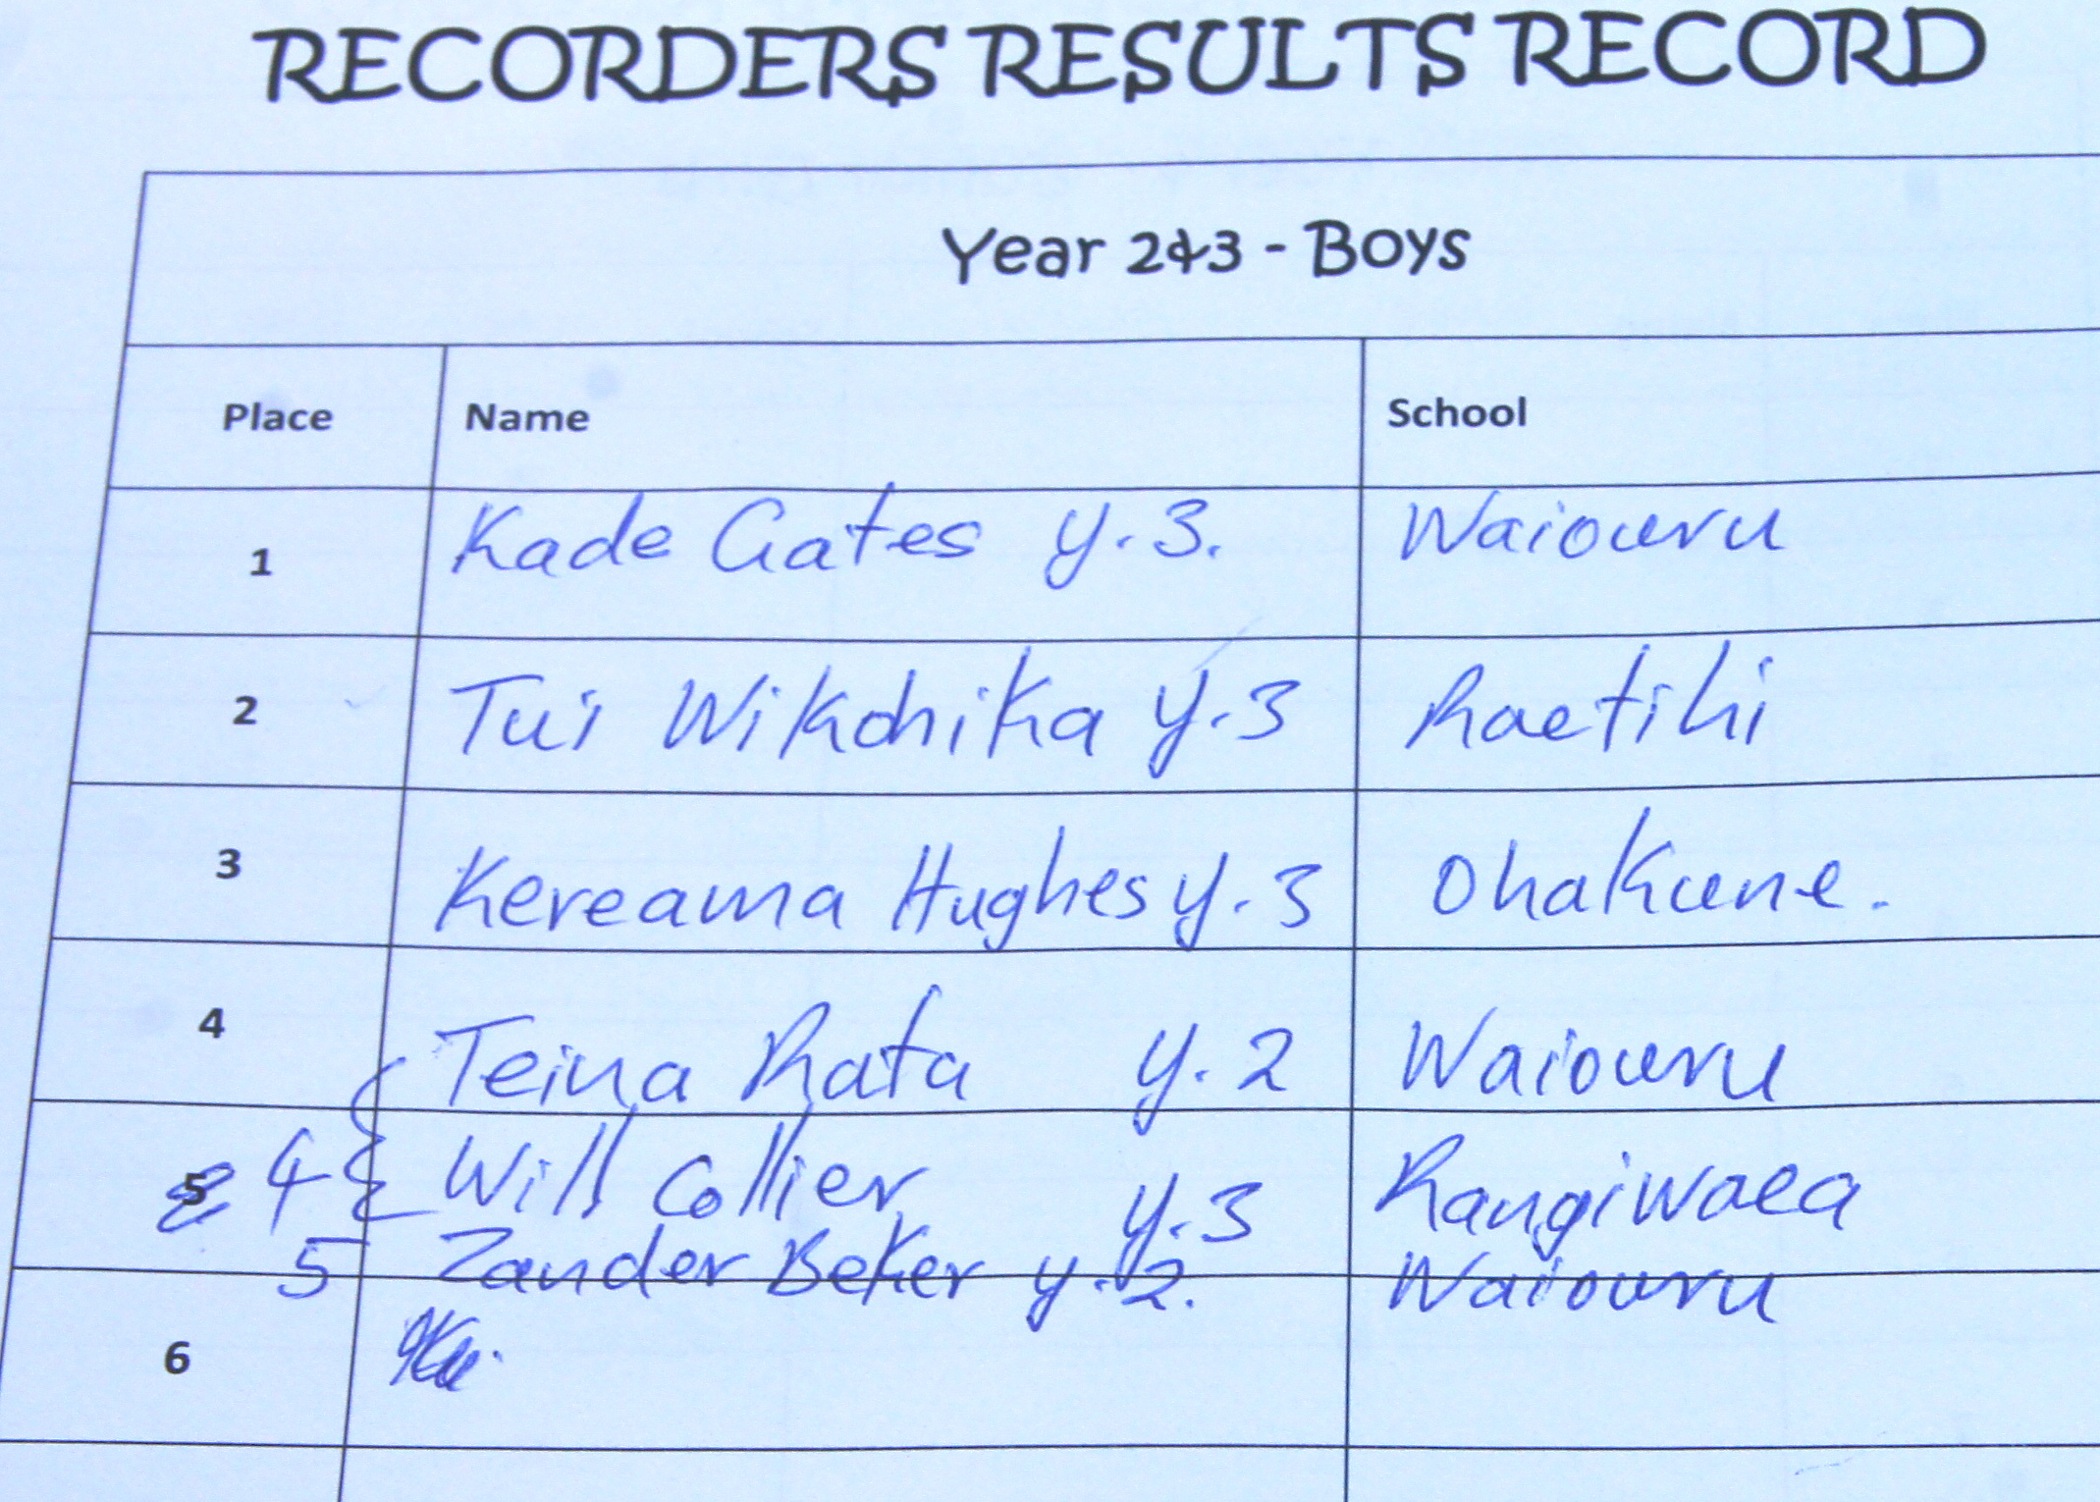 RECORDERS RESULTS RECORD
Year 2&3 - Boys
Place Name School
1 Kade Gates y.3. Waiouru
2 Tui Wikohika y.3 Raetihi
3 Kereama Hughes y.3 Ohakune.
4 Teina Rata y.2 Waiouru
4 Will Collier y.3 Rangiwaea
5 Zander Beker y.2. Waiouru
6